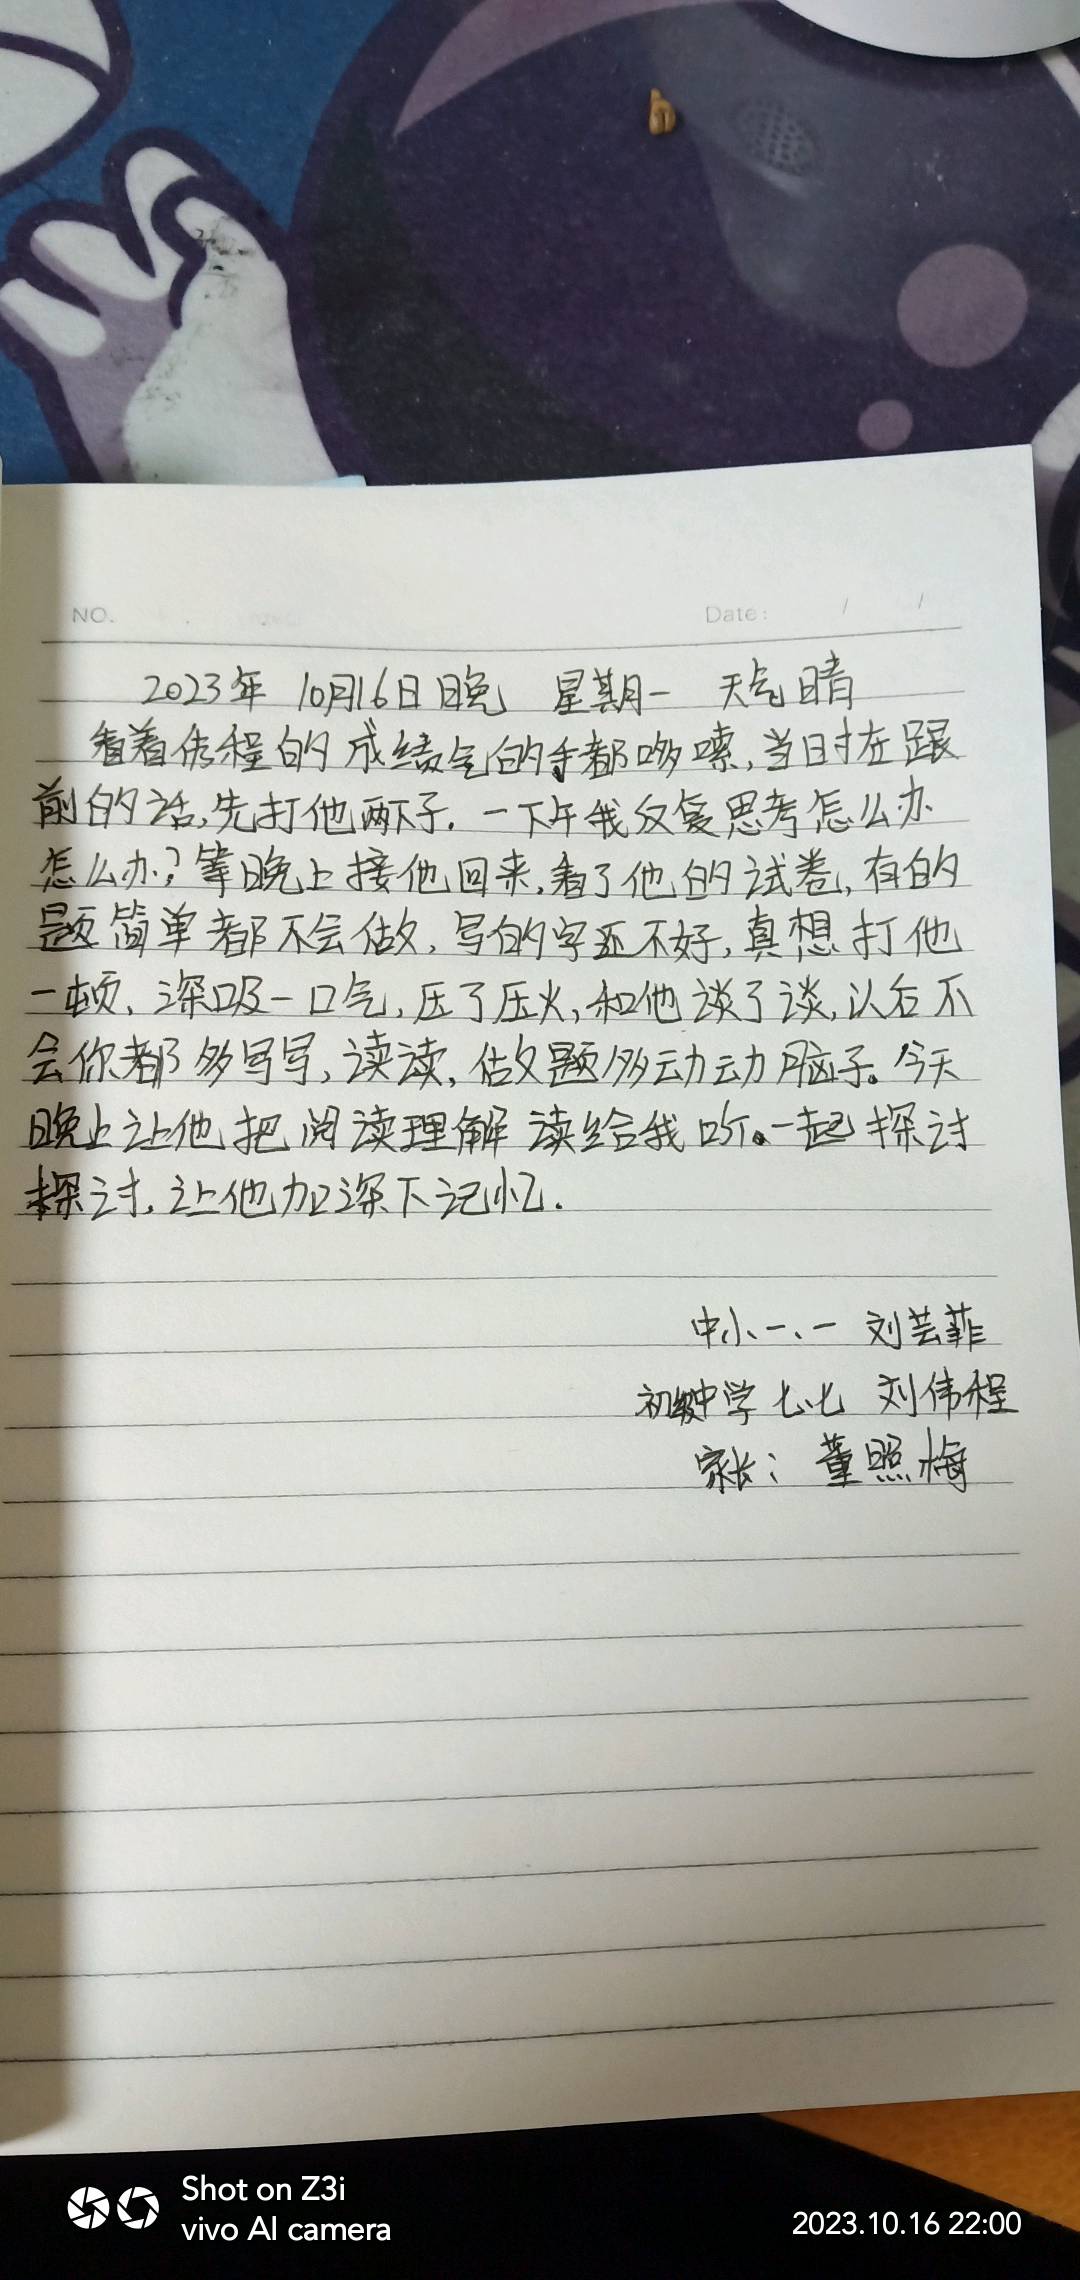 NO.
Date: / /
2023年 10月16日晚 星期一 天气晴
看着伟程的成绩气的手都哆嗦,当时在跟
前的话,先打他两下子.一下午我反复思考怎么办
怎么办?等晚上接他回来,看了他的试卷,有的
题简单都不会做,写的字还不好,真想打他
一顿,深吸一口气,压了压火,和他谈了谈,以后不
会你都多写写,读读,做题多动动脑子。今天
晚上让他把阅读理解读给我听。一起探讨
探讨,让他加深下记忆.
中小一、一 刘芸菲
初级中学 七、七 刘伟程
家长：董照梅
Shot on Z3i
vivo AI camera
2023.10.16 22:00